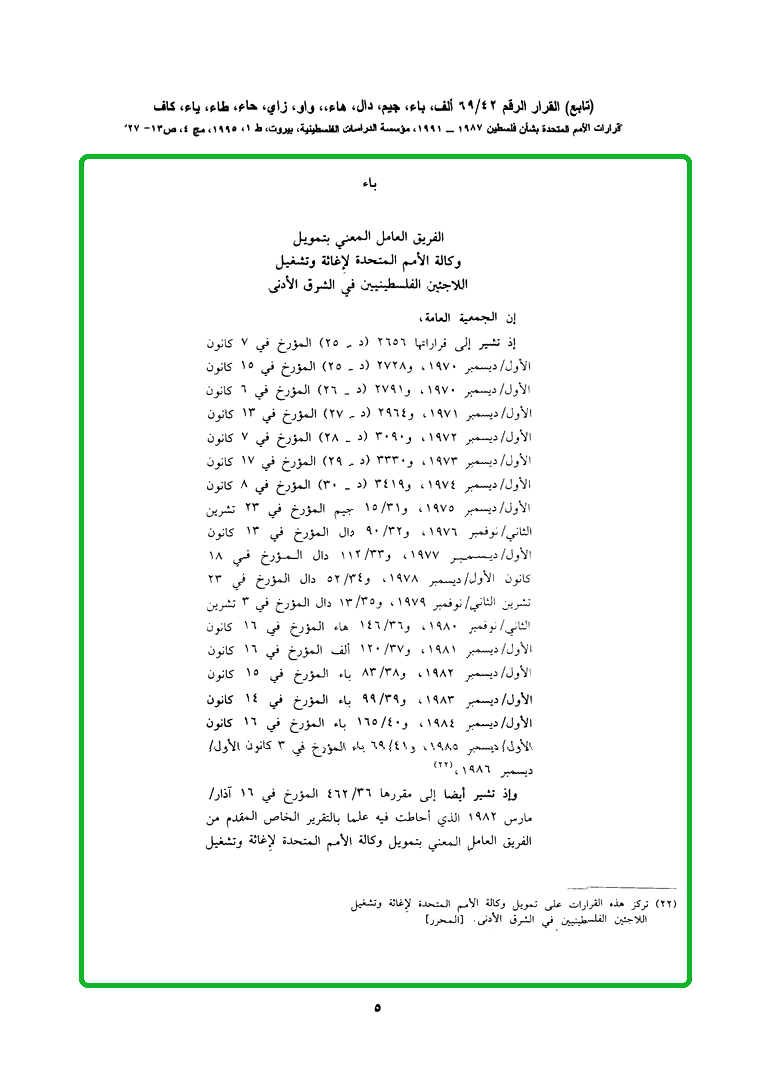 (تابع) القرار الرقم ٦٩/٤٢ ألف، باء، جيم، دال، هاء،، واو، زاي، حاء، طاء، ياء، كاف
"قرارات الأمم المتحدة بشأن فلسطين ١٩٨٧ ــ ١٩٩١، مؤسسة الدراسات الفلسطينية، بيروت، ط ١، ١٩٩٥، مج ٤، ص١٣- ٢٧"
باء
الفريق العامل المعني بتمويل
وكالة الأمم المتحدة لإغاثة وتشغيل
اللاجئين الفلسطينيين في الشرق الأدنى
إن الجمعية العامة،
إذ تشير إلى قراراتها ٢٦٥٦ (د ـ ٢٥) المؤرخ في ٧ كانون
الأول/ديسمبر ١٩٧٠، و٢٧٢٨ (د ـ ٢٥) المؤرخ في ١٥ كانون
الأول/ديسمبر ١٩٧٠، و٢٧٩١ (د ـ ٢٦) المؤرخ في ٦ كانون
الأول/ديسمبر ١٩٧١، و٢٩٦٤ (د ـ ٢٧) المؤرخ في ١٣ كانون
الأول/ديسمبر ١٩٧٢، و٣٠٩٠ (د ـ ٢٨) المؤرخ في ٧ كانون
الأول/ديسمبر ١٩٧٣، و٣٣٣٠ (د ـ ٢٩) المؤرخ في ١٧ كانون
الأول/ديسمبر ١٩٧٤، و٣٤١٩ (د ـ ٣٠) المؤرخ في ٨ كانون
الأول/ديسمبر ١٩٧٥، و١٥/٣١ جيم المؤرخ في ٢٣ تشرين
الثاني/نوفمبر ١٩٧٦، و٩٠/٣٢ دال المؤرخ في ١٣ كانون
الأول/ديسمبر ١٩٧٧، و١١٢/٣٣ دال المؤرخ في ١٨
كانون الأول/ديسمبر ١٩٧٨، و٥٢/٣٤ دال المؤرخ في ٢٣
تشرين الثاني/نوفمبر ١٩٧٩، و١٣/٣٥ دال المؤرخ في ٣ تشرين
الثاني/نوفمبر ١٩٨٠، و١٤٦/٣٦ هاء المؤرخ في ١٦ كانون
الأول/ديسمبر ١٩٨١، و١٢٠/٣٧ ألف المؤرخ في ١٦ كانون
الأول/ديسمبر ١٩٨٢، و٨٣/٣٨ باء المؤرخ في ١٥ كانون
الأول/ديسمبر ١٩٨٣، و٩٩/٣٩ باء المؤرخ في ١٤ كانون
الأول/ديسمبر ١٩٨٤، و١٦٥/٤٠ باء المؤرخ في ١٦ كانون
الأول/ديسمبر ١٩٨٥، و٦٩/٤١ باء المؤرخ في ٣ كانون الأول/
ديسمبر ١٩٨٦،(٢٢)
وإذ تشير أيضا إلى مقررها ٤٦٢/٣٦ المؤرخ في ١٦ آذار/
مارس ١٩٨٢ الذي أحاطت فيه علما بالتقرير الخاص المقدم من
الفريق العامل المعني بتمويل وكالة الأمم المتحدة لإغاثة وتشغيل
(٢٢) تركز هذه القرارات على تمويل وكالة الأمم المتحدة لإغاثة وتشغيل
اللاجئين الفلسطينيين في الشرق الأدنى. [المحرر]
٥